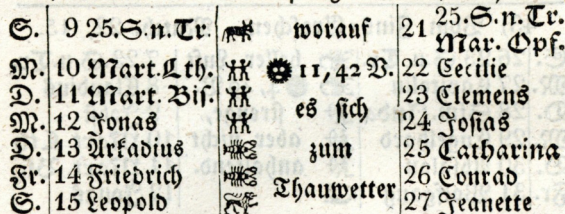 S. 9 25.S.n.Tr. worauf 21 25.S.n.Tr. Mar. Opf.
M. 10 Mart.Lth. 11,42 V. 22 Cecilie
D. 11 Mart. Bis. es sich 23 Clemens
M. 12 Jonas 24 Josias
D. 13 Arkadius zum 25 Catharina
Fr. 14 Friedrich Thauwetter 26 Conrad
S. 15 Leopold 27 Jeanette